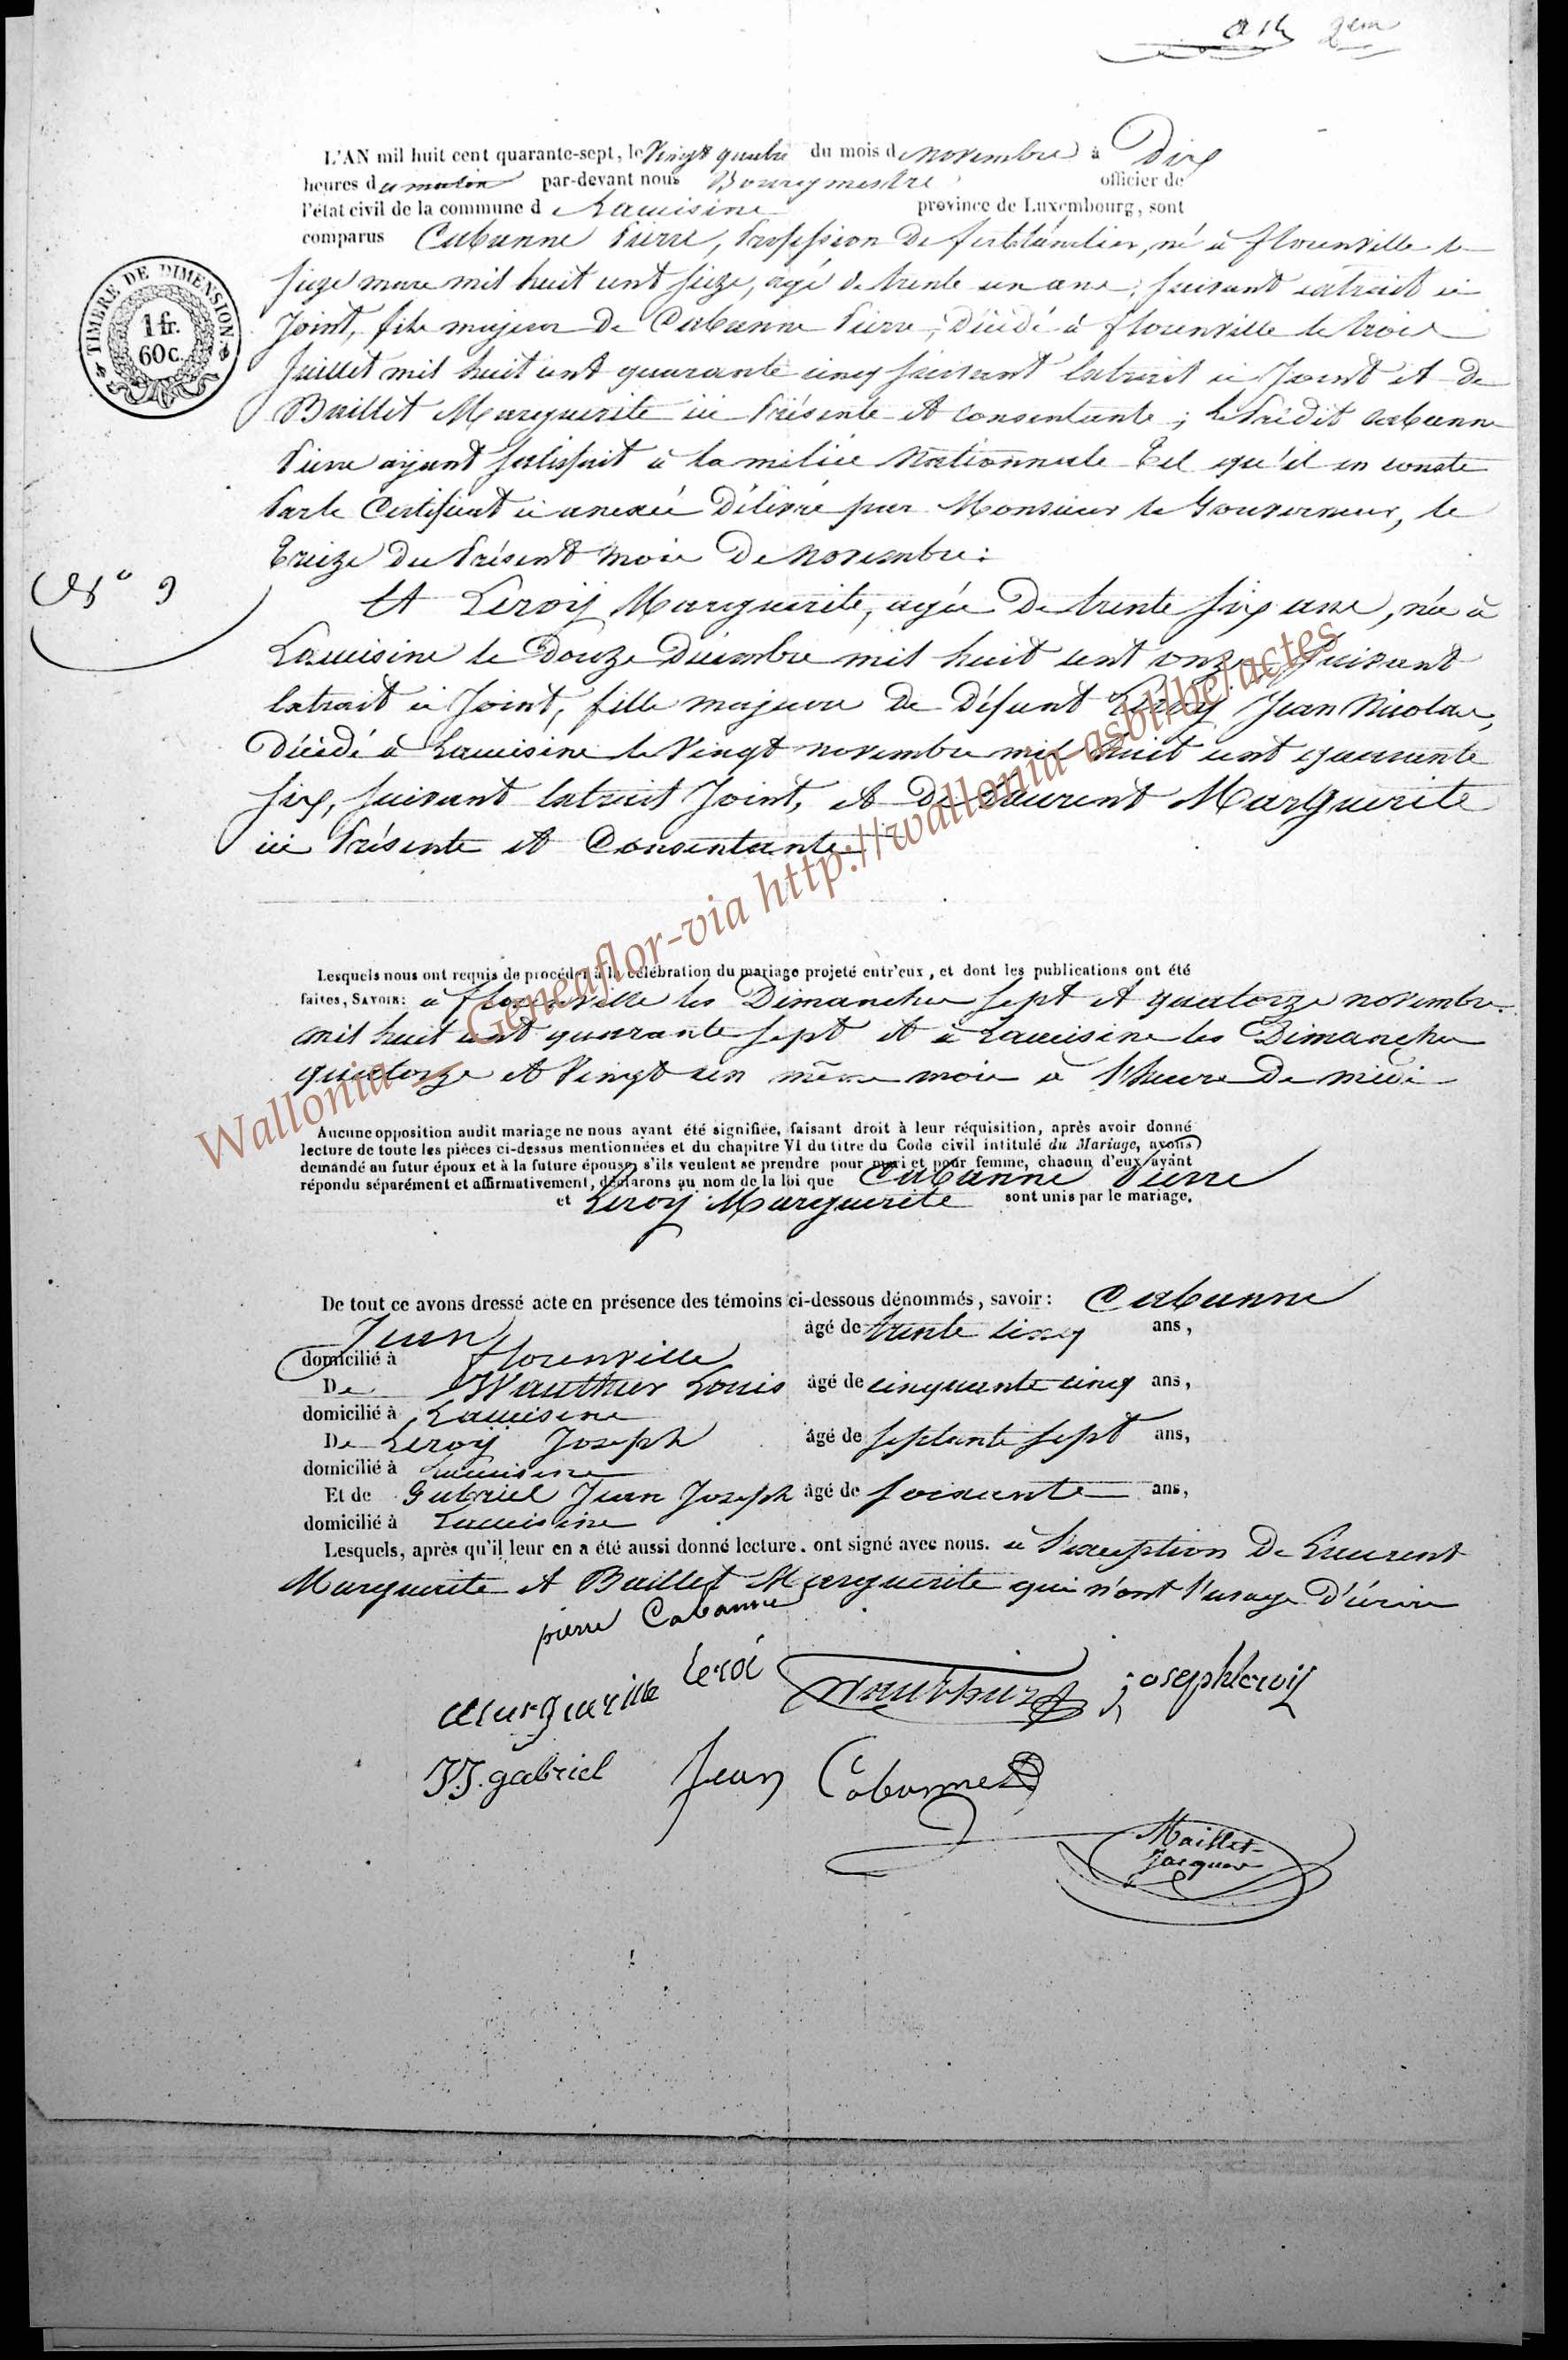 L'AN mil huit cent quarante-sept, le Vingt quatre du mois de novembre à Dix
heures du matin par-devant nous Bourgmestre officier de
l'état civil de la commune de Lacuisine province de Luxembourg, sont
comparus Cabanne Pierre, Profession De ferblantier, né à florenville le
TIMBRE DE DIMENSION
1 fr.
60 c.
seize mars mil huit cent seize, agé de trente un ans, suivant extrait ci
Joint, fils majeur De Cabanne Pierre, Décédé à florenville le trois
Juillet mil huit cent quarante cinq suivant Extrait ci Joint et De
Baillet Marguerite ici Présente et consentante ; le Prédit Cabanne
Pierre ayant satisfait à la milice Nationnale Tel qu'il en conste
Par le Certificat ci anexée Délivré par Monsieur le Gouverneur, le
Treize Du Présent mois De novembre :
N° 9
Et Leroy Marguerite, agée De trente six ans, née à
Lacuisine le Douze Décembre mil huit cent onze suivant
Extrait ci Joint, fille majeure De Défunt Leroy Jean Nicolas,
Décédé à Lacuisine le Vingt novembre mil huit cent quarante
six, suivant Extrait Joint, et De Laurent Marguerite
ici Présente et Consentante
Lesquels nous ont requis de procéder à la célébration du mariage projeté entr'eux, et dont les publications ont été
faites, SAVOIR: à florenville les Dimanches sept et quatorze novembre
mil huit cent quarante sept et à Lacuisine les Dimanches
quatorze et Vingt un même mois à l'heure De midi
Aucune opposition audit mariage ne nous ayant été signifiée, faisant droit à leur réquisition, après avoir donné
lecture de toute les pièces ci-dessus mentionnées et du chapitre VI du titre du Code civil intitulé du Mariage, avons
demandé au futur époux et à la future épouse, s'ils veulent se prendre pour mari et pour femme, chacun d'eux ayant
répondu séparément et affirmativement, déclarons au nom de la loi que Cabanne Pierre
et Leroy Marguerite sont unis par le mariage.
De tout ce avons dressé acte en présence des témoins ci-dessous dénommés, savoir : Cabanne
Jean âgé de trente cinq ans,
domicilié à florenville
De Wauthier Louis âgé de cinquante cinq ans,
domicilié à Lacuisine
De Leroy Joseph âgé de septante sept ans,
domicilié à Lacuisine
Et de Gabriel Jean Joseph âgé de soixante ans,
domicilié à Lacuisine
Lesquels, après qu'il leur en a été aussi donné lecture, ont signé avec nous. à l'exception De Laurent
Marguerite et Baillet Marguerite qui n'ont l'usage D'écrire
pierre Cabanne
Margueritte Leroi Wauthier joseph leroy
JJ. gabriel Jean Cabanne
Maillet-
Jacques
Wallonia - Geneaflor-via http://wallonia-asbl/be/actes